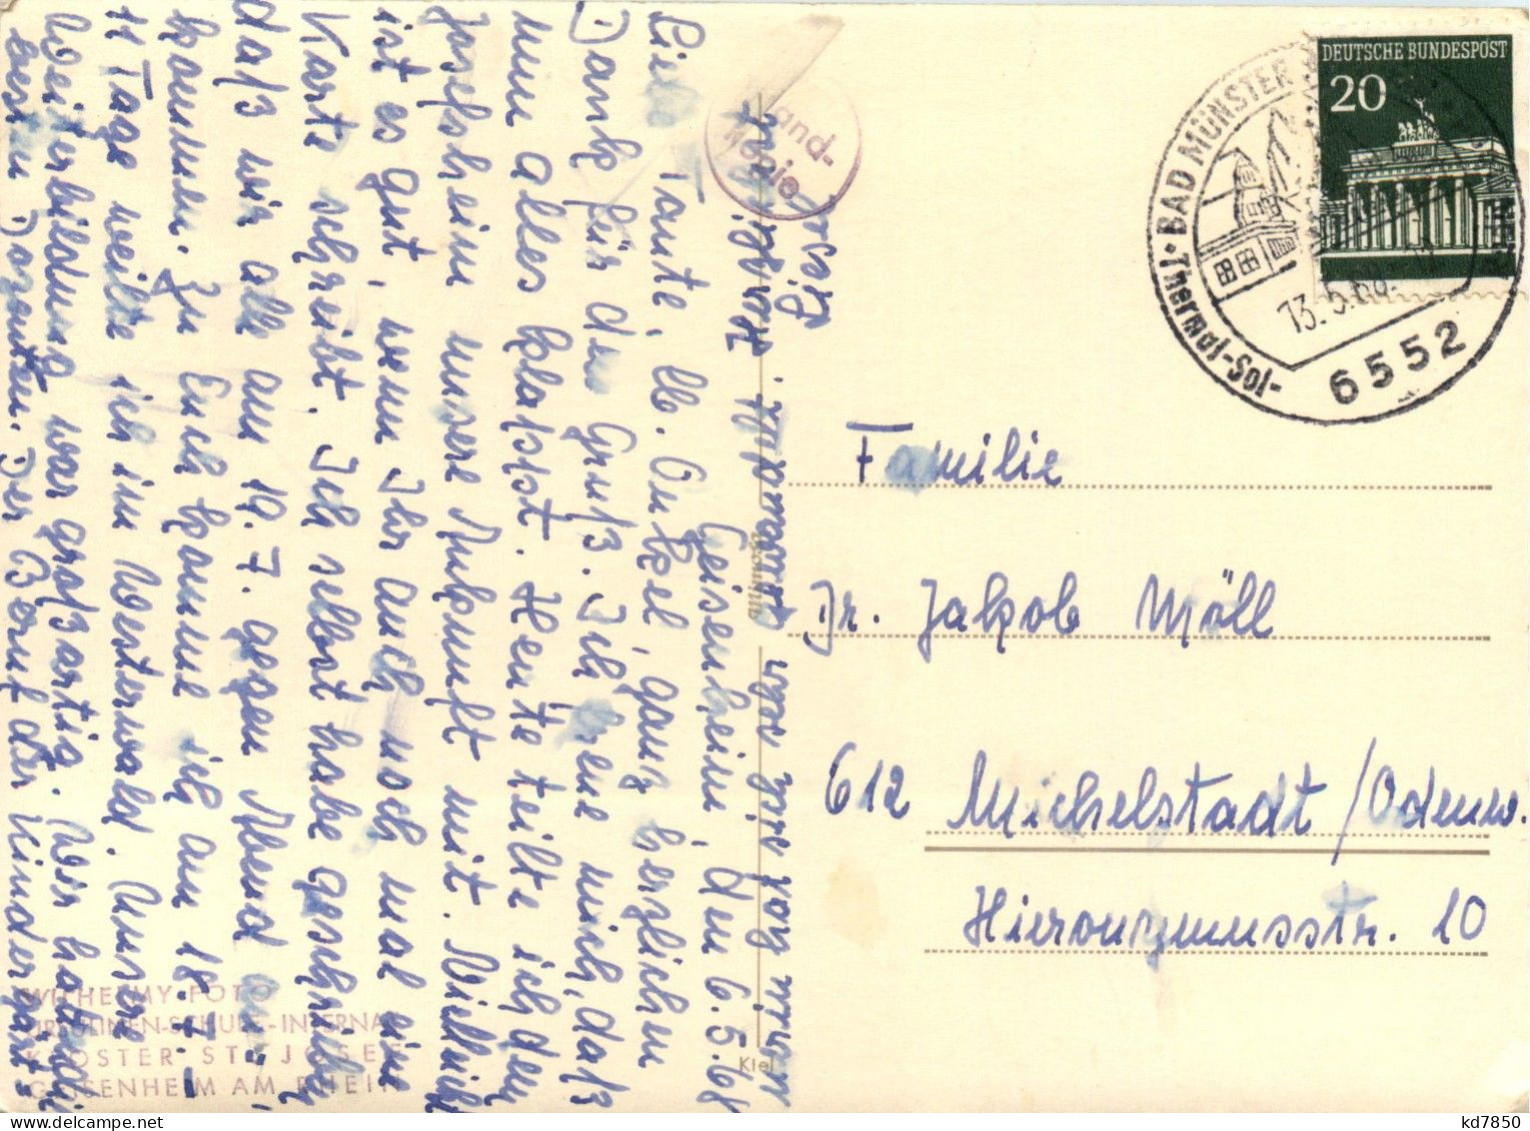 Geisenheim, den 6.5.68
Liebe Tante, lb. Onkel, ganz herzlichen
Dank für den Gruß. Ich freue mich, daß
nun alles klappt. Heute teilte ich den
Josefsheim unsere Ankunft mit. Vielleicht
ist es gut, wenn Ihr auch noch mal eine
Karte schreibt. Ich selbst habe geschrieben,
daß wir alle am 19. 7. gegen Abend
kommen. Zu Euch komme ich am 18. 7. -
11 Tage weilte ich im Westerwald. Unsere
Weiterbildung war großartig. Wir hatten die
besten Dozenten. Der Beruf der Kindergärt
Josefa
DEUTSCHE BUNDESPOST
20
BAD MÜNSTER
Thermal-Sol-
6552
Familie
Dr. Jakob Möll
612 Michelstadt / Odenw.
Hieronymusstr. 10
WILHELMY-FOTO
URSULINEN-SCHULE-INTERNAT
KLOSTER ST. JOSEF
GEISENHEIM AM RHEIN
Kiel
kd7850